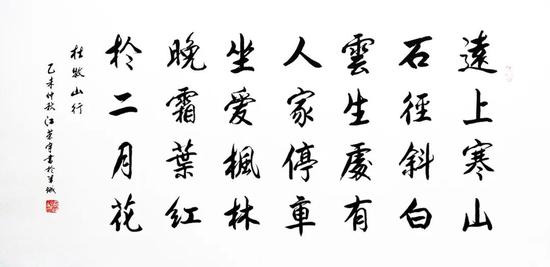 遠上寒山
石徑斜白
雲生處有
人家停車
坐愛楓林
晚霜葉紅
於二月花
杜牧山行
乙未仲秋江書於羊城